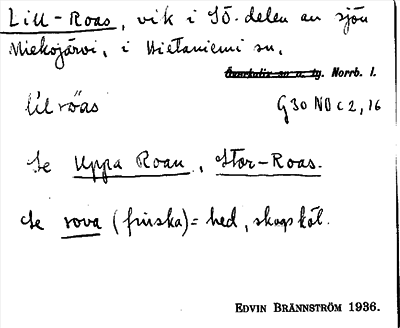 Lill-Roas, vik i SÖ. delen av sjön
Miekojärvi, i Hietaniemi sn,
Överkalix sn o. tg. Norrb. l.
líl rǒas
G30 NO c 2, 16
Se Uppa Roau, Stor-Roas.
Se rova (finska) = hed, skogsköl.
EDVIN BRÄNNSTRÖM 1936.